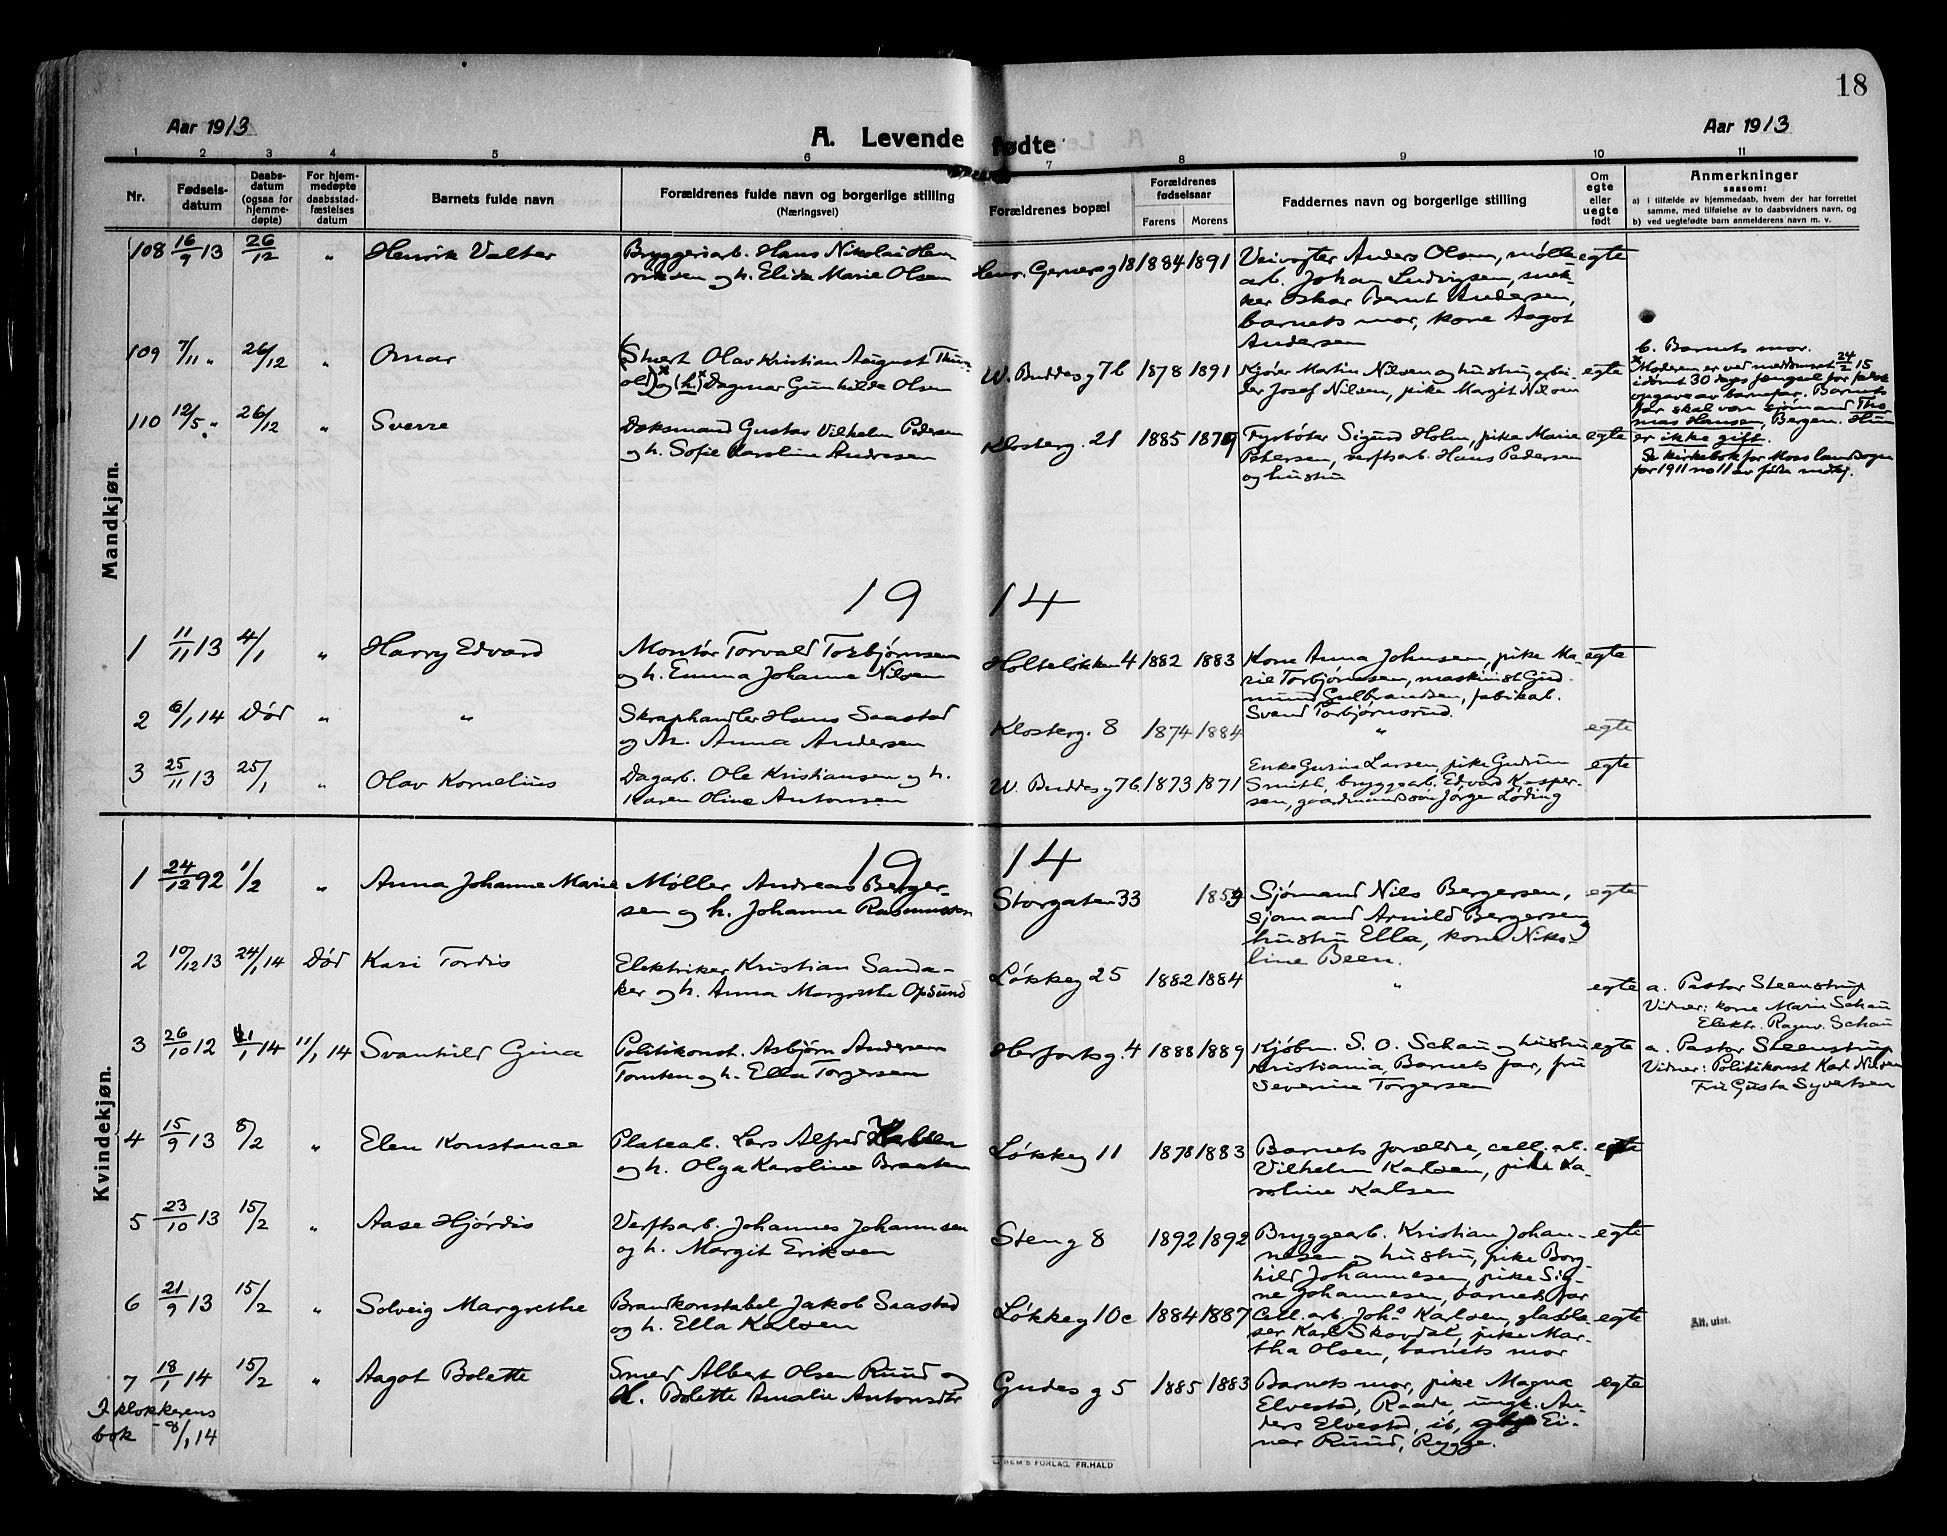 18
Aar 1913
A. Levende fødte
Aar 1913
1 2 3 4 5 6 7 8 9 10 11
Nr.
Fødsels-
datum
Daabs-
datum
(ogsaa for
hjemme-
døpte)
For hjem-
medøpte
daabsstad-
fæstelses
datum
Barnets fulde navn
Forældrenes fulde navn og borgerlige stilling
(Næringsvei)
Forældrenes bopæl
Forældrenes
fødselsaar
Farens Morens
Faddernes navn og borgerlige stilling
Om
egte
eller
uegte
født
Anmerkninger
saasom:
a) i tilfælde av hjemmedaab, hvem der har forrettet
samme, med tilføielse av to daabsvidners navn, og
b) ved uegtefødte barn anmelderens navn m. v.
Mandkjøn.
108 16/9 13 26/12 " Henrik Valter
Bryggeriarb. Hans Nikolai Hen
riksen og h. Elida Marie Olsen
Henr. Gerners g 18 1884 1891
Veivogter Anders Olsen, mølle
arb. Johan Ludvigsen, snek-
ker Oskar Bernt Andersen,
barnets mor, kone Aagot
Andersen
egte
109 7/11 " 26/12 " Omar
(Stuert Olav Kristian August Thur
old)x og (h.)x Dagmar Gunhilde Olsen
W. Buddes g 7b 1878 1891
Kjører Martin Nilsen og hustru, arbei-
der Josef Nilsen, pike Margit Nilsen
egte
b. Barnets mor.
x Moderen er ved meddomsret 24/2 15
idømt 30 dages fengsel for falsk
opgave av barnefar. Barnets
far skal være sjømand Tho-
mas Hansen, Bergen. Hun
er ikke gift.
Se kirkebok for Moss landsogn
for 1911 no 11 av fødte mdkj.
110 12/5 " 26/12 " Sverre
Doksmand Gustav Vilhelm Pedersen
og h. Sofie Karoline Andresen
Klosterg. 21 1885 1879
Fyrbøter Sigurd Holm, pike Marie
Petersen, verftsarb. Hans Pedersen
og hustru
egte
19 14
1 11/11 13 4/1 " Harry Edvard
Montør Torvald Torbjørnsen
og h. Emma Johanne Nilsen
Holteløkken 4 1882 1883
Kone Anna Johnsen, pike Ma-
rie Torbjørnsen, maskinist Gud-
mund Gulbrandsen, fabrikab.
Svend Torbjørnsrud.
egte
2 6/1 14 Død " "
Skraphandler Hans Saastad
og h. Anna Andersen
Klosterg. 8 1874 1884 " egte
3 25/11 13 25/1 " Olav Kornelius
Dagarb. Ole Kristiansen og h.
Karen Oline Antonsen
W. Buddes g 7b 1873 1871
Enke Gurine Larsen, pike Gudrun
Smith, bryggearb. Edvard Kasper-
sen, gaardmandssøn Jørgen Løding
egte
Kvindekjøn.
19 14
1 24/12 92 1/2 " Anna Johanne Marie
Møller Andreas Berger-
sen og h. Johanne Rasmussen
Storgaten 33 1853
Sjømand Nils Bergersen,
sjømand Arnild Bergersen og
hustru Ella, kone Niko-
line Been.
egte
2 10/12 13 24/1 14 Død Kari Tordis
Elektriker Kristian Sanda-
ker og h. Anna Margrethe Opsund
Løkkeg 25 1882 1884 " egte
a. Pastor Steenstrup
Vidner: kone Marie Schau
Elektr. Ragnv. Schau
3 26/10 12 11/1 14 11/1 14 Svanhild Gina
Politikonst. Asbjørn Andersen
Tomten og h. Ella Torgersen
Herfortsg. 4 1888 1889
Kjøbm. S. O. Schau og hustru
Kristiania, Barnets far, fru
Severine Torgersen
egte
a. Pastor Steenstrup
Vidner: Politikonst Karl Nilsen
Fru Gusta Syvertsen
4 15/9 13 8/2 " Elen Konstance
Platearb. Lars Alfred
og h. Olga Karoline Braaten
Løkkeg 11 1878 1883
Barnets forældre, cell. arb.
Vilhelm Karlsen, pike Ka-
roline Karlsen
egte
5 23/10 13 15/2 " Aase Hjørdis
Verftsarb. Johannes Johannsen
og h. Margit Eriksen
Steng 8 1892 1892
Bryggearb. Kristian Johan-
nesen og hustru, pike Borg-
hild Johannesen, pike Sig-
ne Johannesen, barnets far
egte
6 21/9 13 15/2 " Solveig Margrethe
Brandkonstabel Jakob Saastad
og h. Ella Karlsen
Løkkeg 10c 1884 1887
Cell. arb. Johs Karlsen, glasblæ-
ser Karl Skovdal, pike Mar-
tha Olsen, barnets mor
egte
Att. utst.
7 18/1 14 15/2 " Aagot Bolette
Smed Albert Olsen Ruud og
h. Bolette Amalie Antonsdtr
Gudes g 5 1885 1883
Barnets mor, pike Magna
Elvestad, Raade, ungk. An-
ders Elvestad, ib, Ei-
nar Ruud, Rygge.
egte
I klokkerens
bok - 8/1 14
FORLAG, FR.HALD